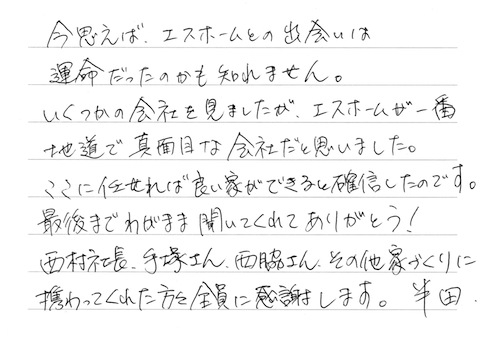 今思えば、エスホームとの出会いは
運命だったのかも知れません。
いくつかの会社を見ましたが、エスホームが一番
地道で真面目な会社だと思いました。
ここに任せれば良い家ができると確信したのです。
最後までわがまま聞いてくれてありがとう!
西村社長、手塚さん、西脇さん、その他家づくりに
携わってくれた方を全員に感謝します。 半田.